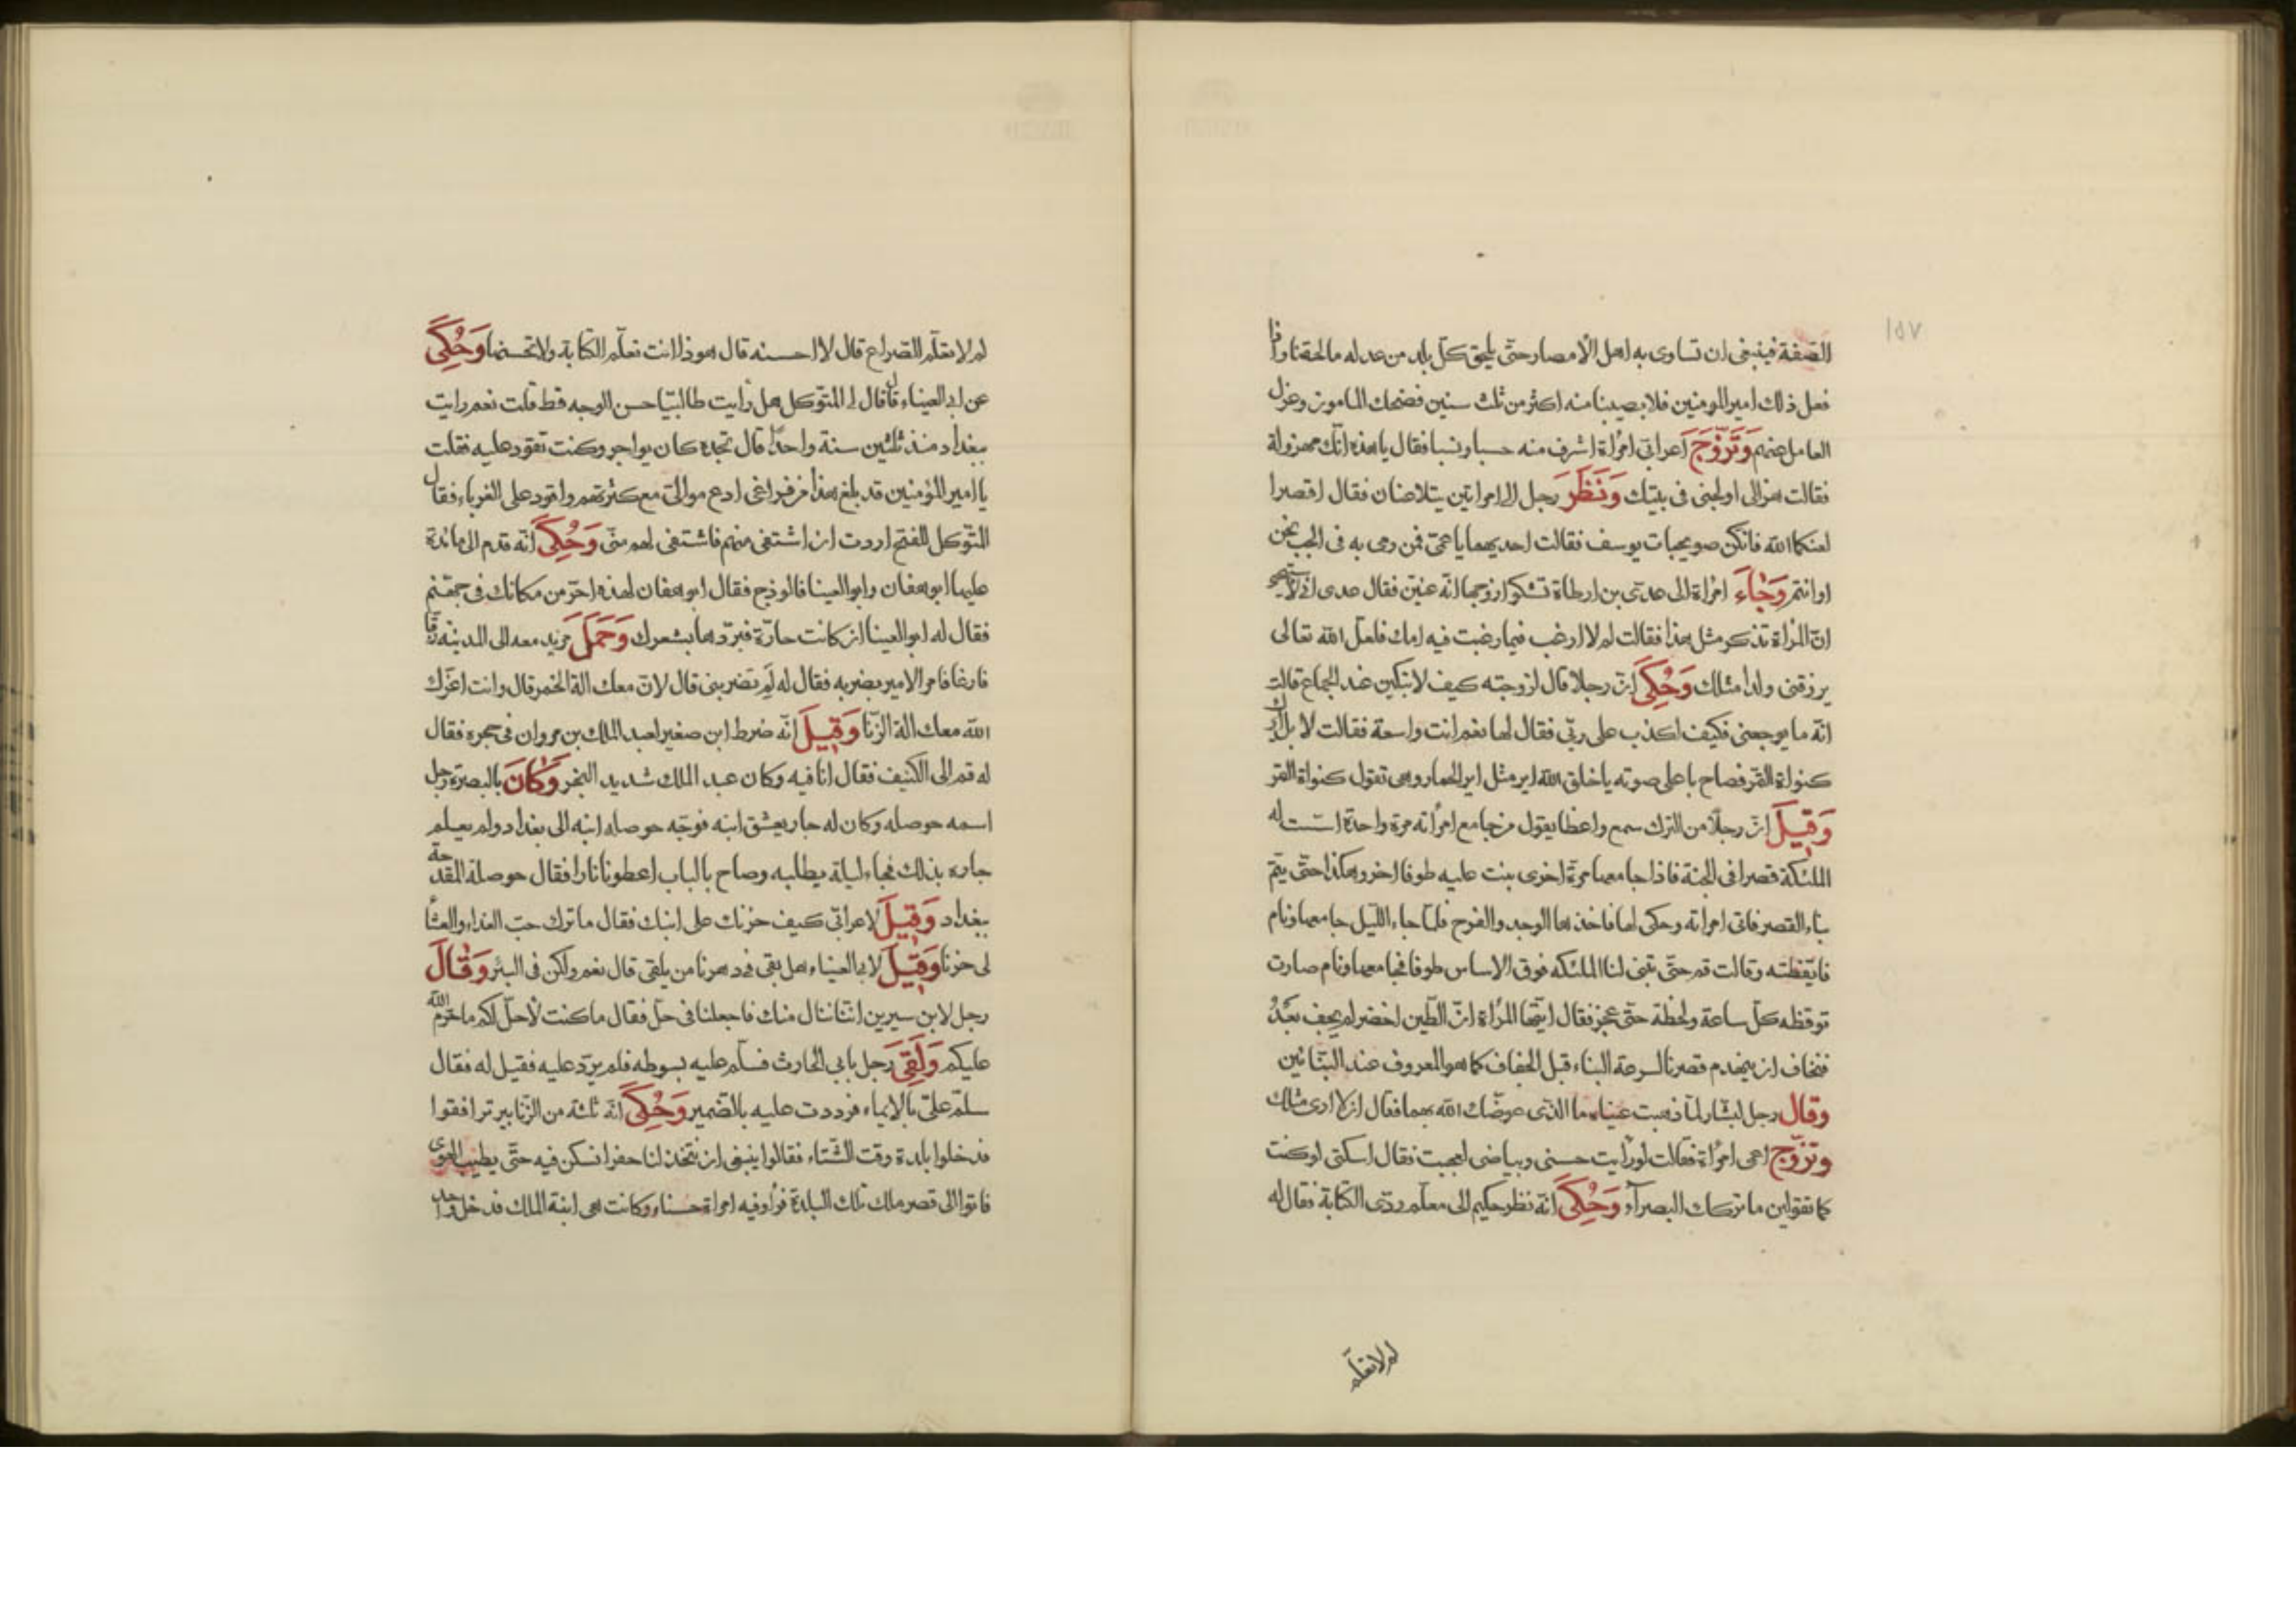 ١٥٧
الصفة فينبغى ان تساوى به اهل الأمصار حتّى يلحق كلّ بلد من عدله ما لحقنا واذا
فعل ذلك امير المومنين فلا يصيبنا منه اكثر من ثلث سنين فضحك المامون وعزل
العامل عنهم وَتَزَوَّجَ اعرابى امرأة اشرف منه حسبا ونسبا فقال يا هذه انّك مهزولة
فقالت هزالى اولجنى فى بيتك وَنَظَرَ رجل الى امراتين يتلاعنان فقال اقصرا
لعنكما الله فانكن صويحبات يوسف فقالت احديهما يا عمى فمن رمى به فى الجب نحن
او انتم وَجَاءَ امراة الى عدىّ بن ارطاة تشكو ان زوجها انّه عنين فقال عدى انى لاستحى
انّ المرأة تذكر مثل هذا فقالت لم لا ارغب فيما رغبت فيه امك فلعلّ الله تعالى
يرزقنى ولدا مثلك وَحُكِىَ انّ رجلا قال لزوجته كيف لا تبكين عند الجماع قالت
انّه ما يوجعنى فكيف اكذب على ربّى فقال لها نعم انت واسعة فقالت لا بل ايرك
كنواة التمر فصاح باعلى صوته يا خلق الله اير مثل اير الحمار وهى تقول كنواة التمر
وَقِيلَ انّ رجلاً من الترك سمع واعظا يقول من جامع امرأته مرة واحدة اسّست له
الملئكة قصرا فى الجنة فاذا جامعها مرة اخرى بنت عليه طوفا اخر وهكذا حتّى يتمّ
بناء القصر فاتى امراته وحكى لها فاخذها الوجد والفرح فلمّا جاء اللّيل جامعها ونام
فايقظته وقالت قم حتّى تبنى لنا الملئكه فوق الاساس طوفا فجامعها ونام صارت
توقظه كلّ ساعة ولحظة حتّى عجز فقال ايّتها المرأة انّ الطّين اخضر لم يجف بَعْدُ
فنخاف ان ينهدم قصرنا لسرعة البناء قبل الجفاف كما هو المعروف عند البنّائين
وقال رجل لبشّار لمّا ذهبت عيناه ما الذى عوضك الله بهما فقال ان لا ارى مثلك
وتزوّج اعمى امرأة فقالت لو رأيت حسنى وبياضى لعجبت فقال اسكتى لو كنت
كما تقولين ما تركك البصرآء وَحُكِىَ انّه نظر حكيم الى معلّم ردّى الكتابة فقال له
لم لا تعلّم
لم لا تعلّم الصراع قال لا احسنه قال هوذا انت تعلّم الكتابة ولا تحسنها وَحُكِىَ
عن ابى العيناء قال قال لى المتوكل هل رأيت طالبيّا حسن الوجه قط قلت نعم رايت
ببغداد منذ ثلثين سنة واحدا قال تجده كان يواجر وكنت تقود عليه فقلت
يا امير المؤمنين قد بلغ هذا من فراغى ادع موالىّ مع كثرتهم واقود على الغرباء فقال
المتوكل للفتح اردت ان اشتفى منهم فاشتفى لهم منّى وَحُكِىَ انّه قدم الى مائدة
عليها ابو هفان وابو العينا فالوذج فقال ابو هفان لهذه احرّ من مكانك فى جهنّم
فقال له ابو العينا ان كانت حارّة فبرّدها بشعرك وَحَمَلَ مزيد معه الى المدينه زقّا
فارغا فامر الامير بضربه فقال له لِمَ تضربنى قال لانّ معك الة الخمر قال وانت اعزّك
الله معك الة الزّنا وَقِيلَ انّه ضرط ابن صغير لعبد الملك بن مروان فى حجره فقال
له قم الى الكنيف فقال انا فيه وكان عبد الملك شديد البخر وَكَانَ بالبصرة رجل
اسمه حوصله وكان له جار يعشق ابنه فوجّه حوصله ابنه الى بغداد ولم يعلم
جاره بذلك فجاء ليلة يطلبه وصاح بالباب اعطونا نارا فقال حوصلة المقدحة
ببغداد وَقِيلَ لاعرابّى كيف حزنك على ابنك فقال ما ترك حبّ الغداء والعشأ
لى حزنا وَقِيلَ لابى العيناء هل بقى فى دهرنا من يلقى قال نعم ولكن فى البئر وَقَالَ
رجل لابن سيرين انّنا ننال منك فاجعلنا فى حلّ فقال ما كنت لأحلّ لكم ما حرّم الله
عليكم وَلَقِىَ رجل بابى الحارث فسلّم عليه بسوطه فلم يردّ عليه فقيل له فقال
سلّم علىّ بالايماء فرددت عليه بالضّمير وَحُكِىَ انّه ثلثة من الزّنابير ترافقوا
فدخلوا بلدة وقت الشّتاء فقالوا ينبغى ان نتّخذ لنا حفرا نسكن فيه حتّى يطيب الهوى
فاتوا الى قصر ملك تلك البلدة فرأوا فيه امراة حسناء وكانت هى ابنة الملك فدخل واحد